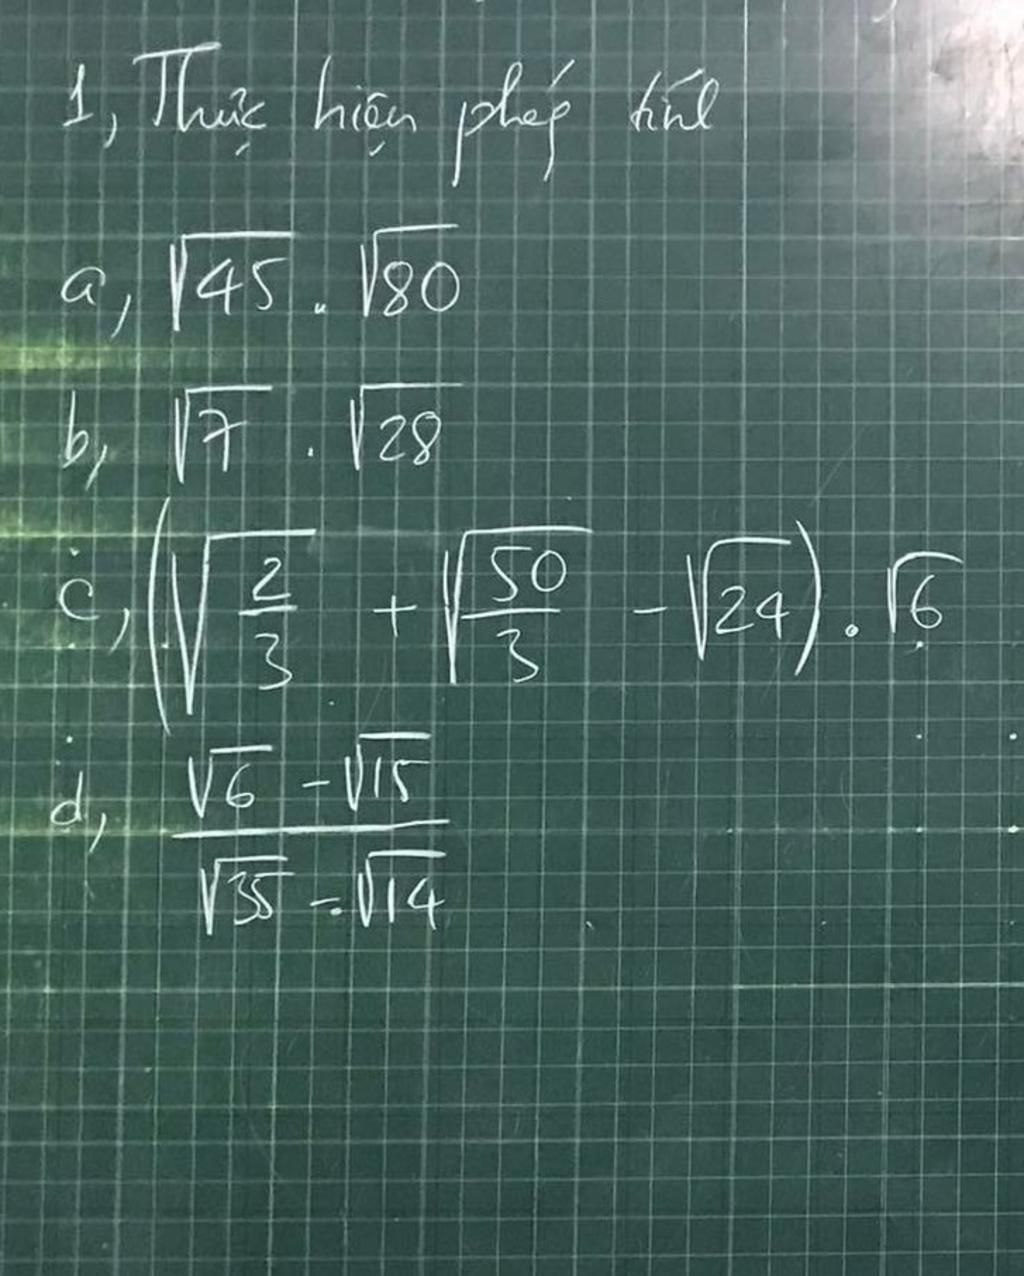 1, Thực hiện phép tính
a, √45 . √80
b, √7 . √28
c, (√(2/3) + √(50/3) - √24) . √6
d, (√6 - √15)/(√35 - √14)